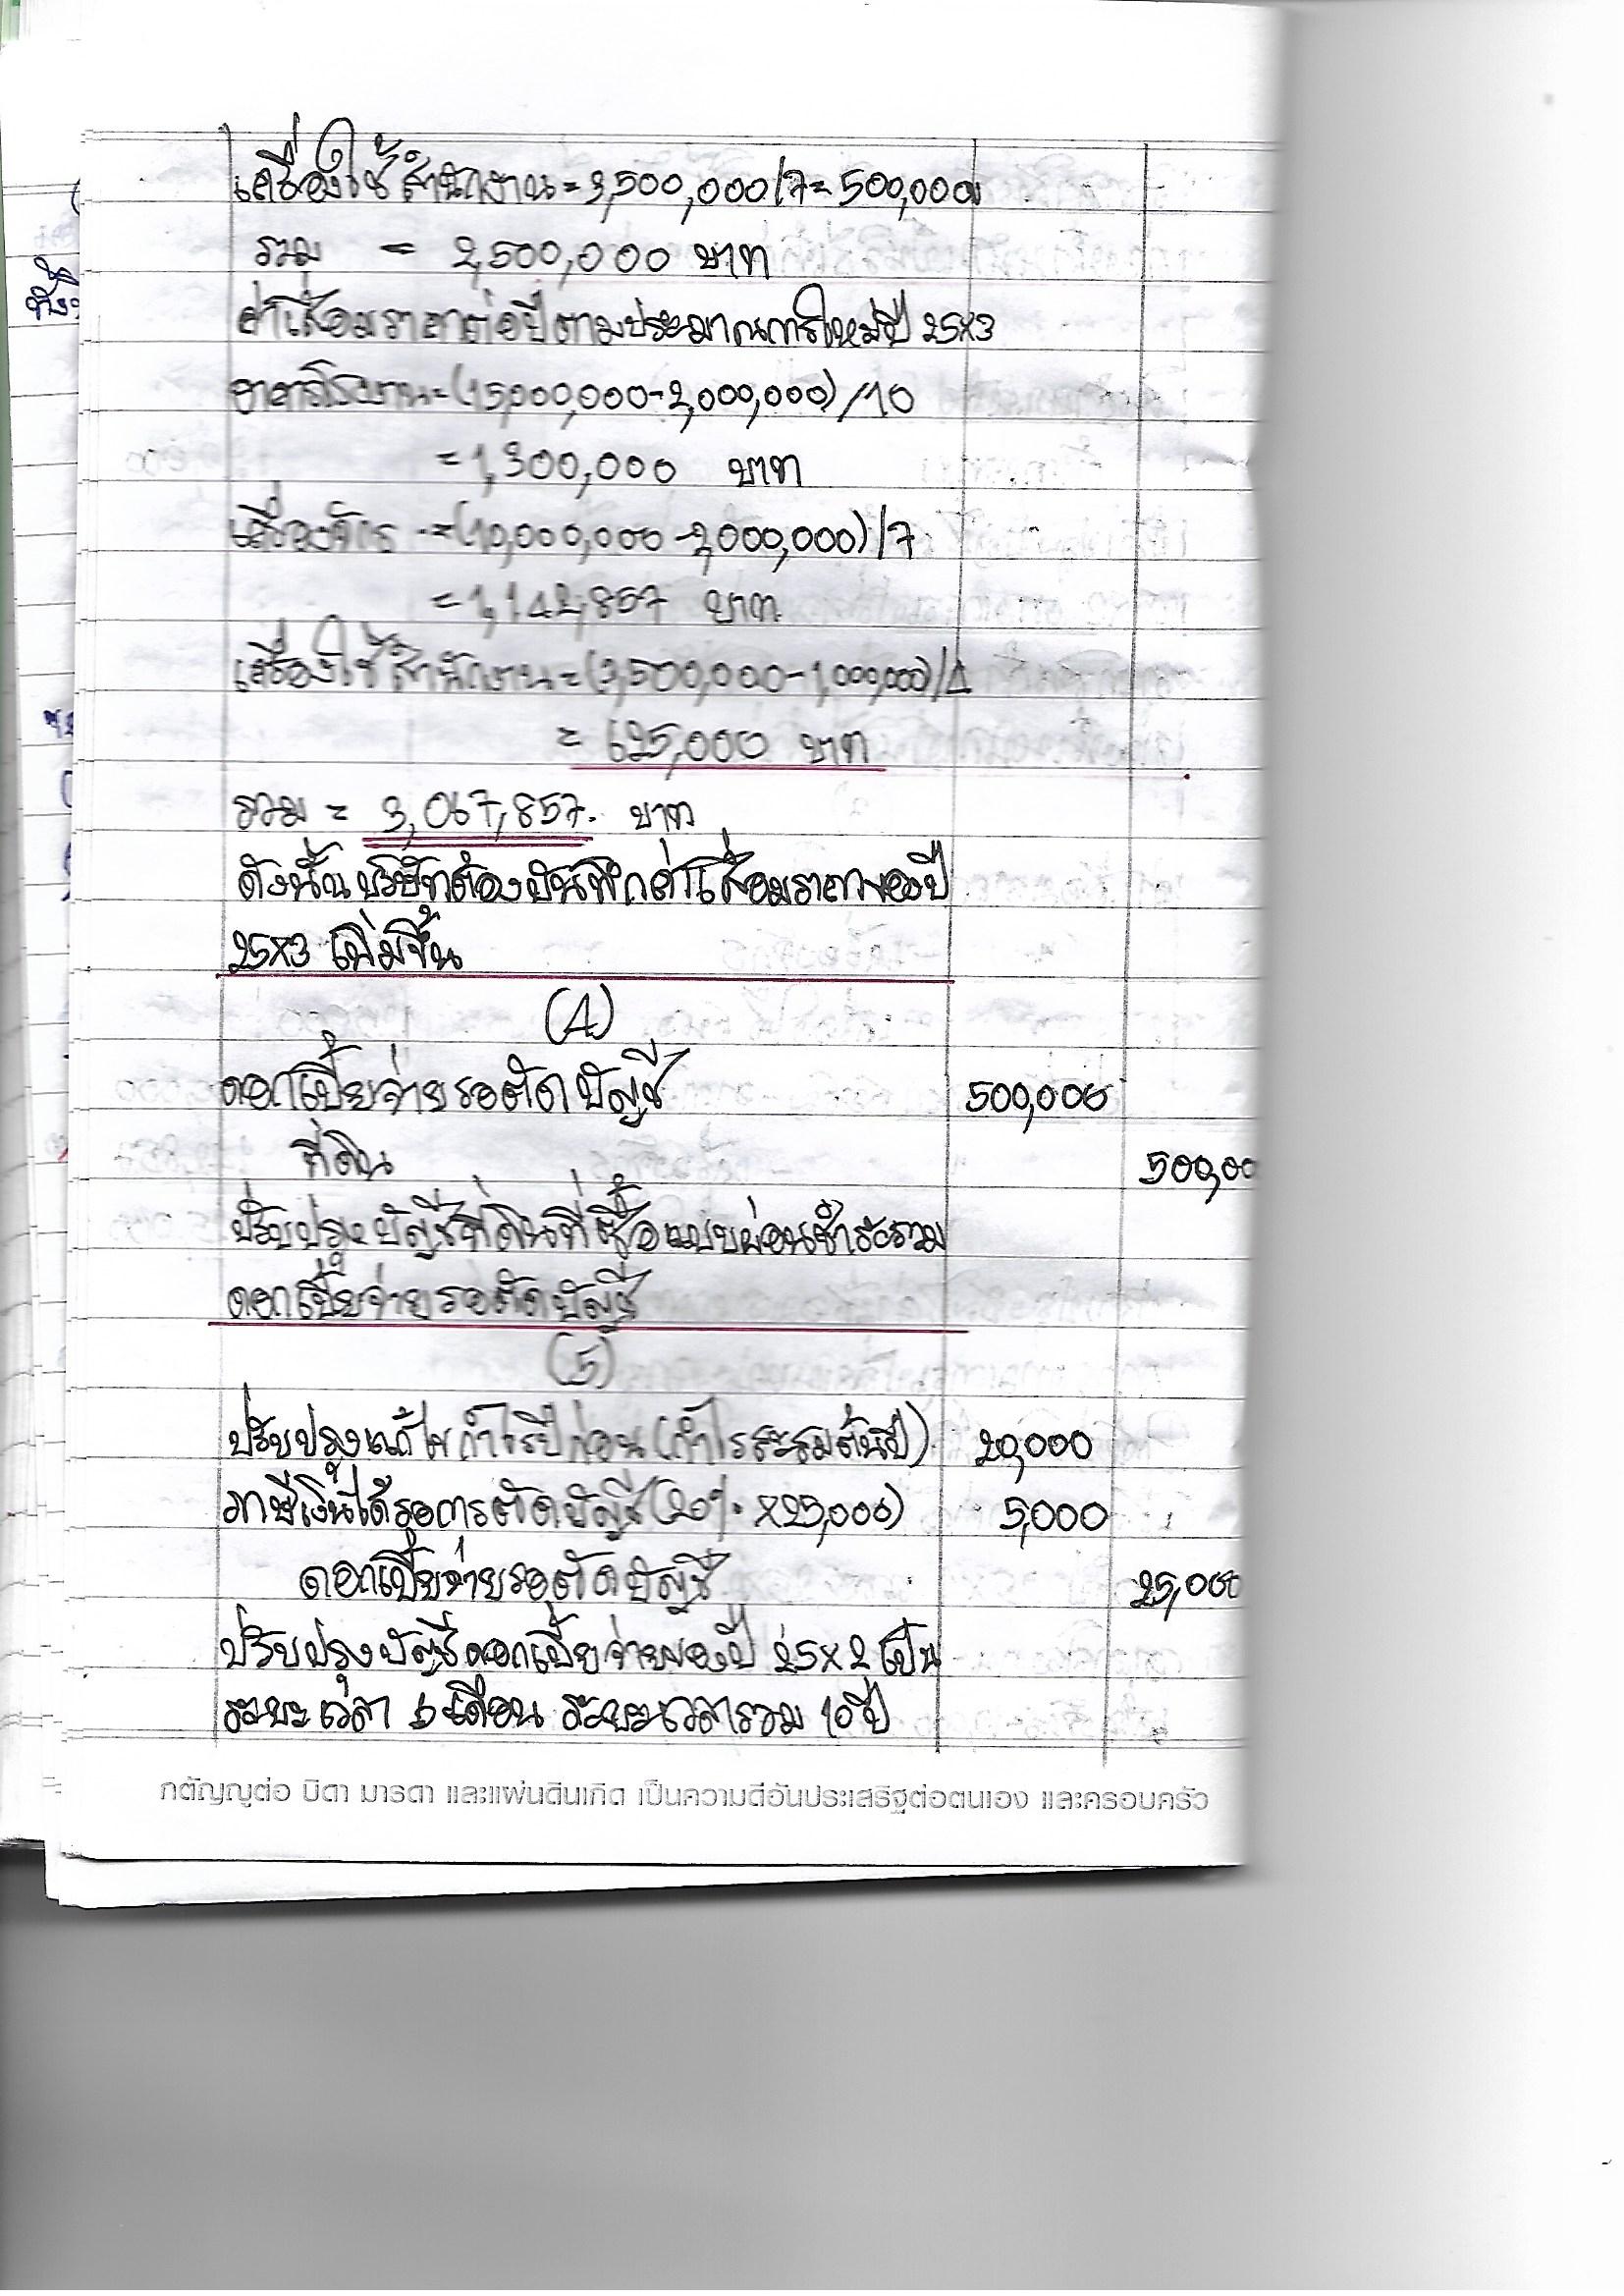 เครื่องใช้สำนักงาน = 3,500,000/7 = 500,000
รวม = 2,500,000 บาท
ค่าเสื่อมราคาต่อปีตามประมาณการใหม่ปี 25x3
อาคารโรงงาน = (15,000,000 - 2,000,000)/10
= 1,300,000 บาท
เครื่องจักร = (10,000,000 - 2,000,000)/7
= 1,142,857 บาท
เครื่องใช้สำนักงาน = (3,500,000 - 1,000,000)/4
= 625,000 บาท
รวม = 3,067,857. บาท
ดังนั้นบริษัทต้องบันทึกค่าเสื่อมราคาของปี
25x3 เพิ่มขึ้น
(4)
ดอกเบี้ยจ่ายรอตัดบัญชี 500,000
ที่ดิน 500,00
ปรับปรุงบัญชีที่ดินที่ซื้อแบบผ่อนชำระรวม
ดอกเบี้ยจ่ายรอตัดบัญชี
(5)
ปรับปรุงแก้ไขกำไรปีก่อน (กำไรสะสมต้นปี) 20,000
ภาษีเงินได้รอการตัดบัญชี (20% x25,000) 5,000
ดอกเบี้ยจ่ายรอตัดบัญชี 25,000
ปรับปรุงบัญชีดอกเบี้ยจ่ายของปี 25x2 เป็น
ระยะเวลา 6 เดือน ระยะเวลารวม 10 ปี
กตัญญูต่อ บิดา มารดา และแผ่นดินเกิด เป็นความดีอันประเสริฐต่อตนเอง และครอบครัว